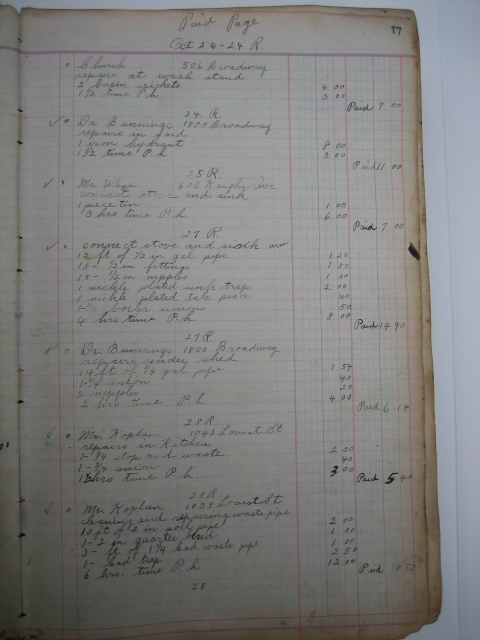 Paid Page 17
Oct 24-24 R.
Church 506 Broadway
repairs at wash stand
2 basin gaskets 4 00
1 1/2 time P.h. 3 00
Paid 7 00
24 R.
Dr. Bunnings 1800 Broadway
repairs in yard
1 iron hydrant 8 00
1 1/2 time P.h 3 00
Paid 11 00
25 R.
Mr. 605 Kaighn Ave
connect stove and sink
1 piece tin 1 00
3 hrs time P.h. 6 00
Paid 7 00
27 R.
connect stove and
12 ft of 1/2 in gal pipe 1 20
18 - 1/2 in fittings 1 80
18 - 1/2 in nipples 1 00
1 nickle plated sink trap 2 00
1 nickle plated tale piece 40
boiler union 50
4 hrs time P.h 8 00
Paid 14.90
27 R.
Dr. Bunnings 1800 Broadway
repairs under shed
14 ft of 3/4 gal pipe 1 54
1-3/4 union 40
2 nipples 20
2 hrs time P.h 4 00
Paid 6.14
28 R
Mr. Koplan 1042 Locust St
repairs in Kitchen
1-3/4 stop and waste 2 00
1-3/4 union 40
hrs time P.h. 3 00
Paid 5 40
28 R.
Mr. Koplan 1039 Locust St
cleaning and repairing waste pipe
10 ft of 2 in soil pipe 2 00
1-2 in quarter bend 1 00
2- ft of 1 1/4 lead waste pipe 1 00
1- lead trap 2 50
6 hrs. time P.h 12 00
Paid 18 50
28